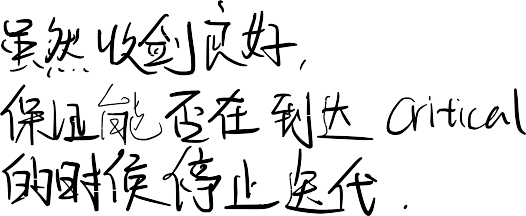 虽然收剑良好,
保证能否在到达 Critical
的时候停止迭代.